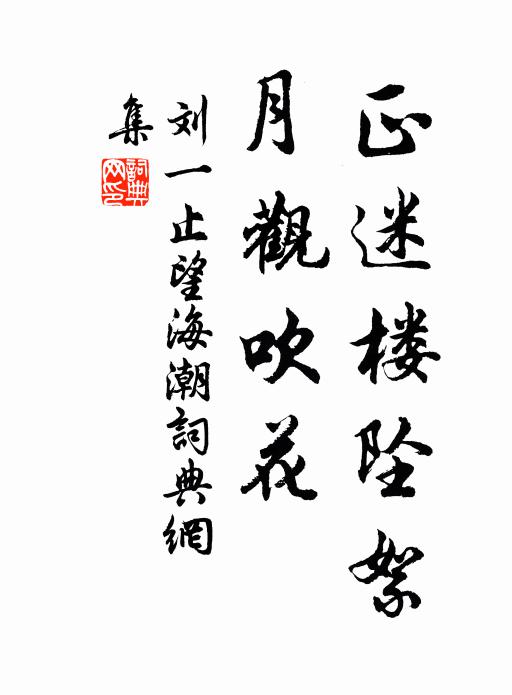 正迷楼坠絮
月觀吹花
刘一止望海潮詞典網
集
詞典网印